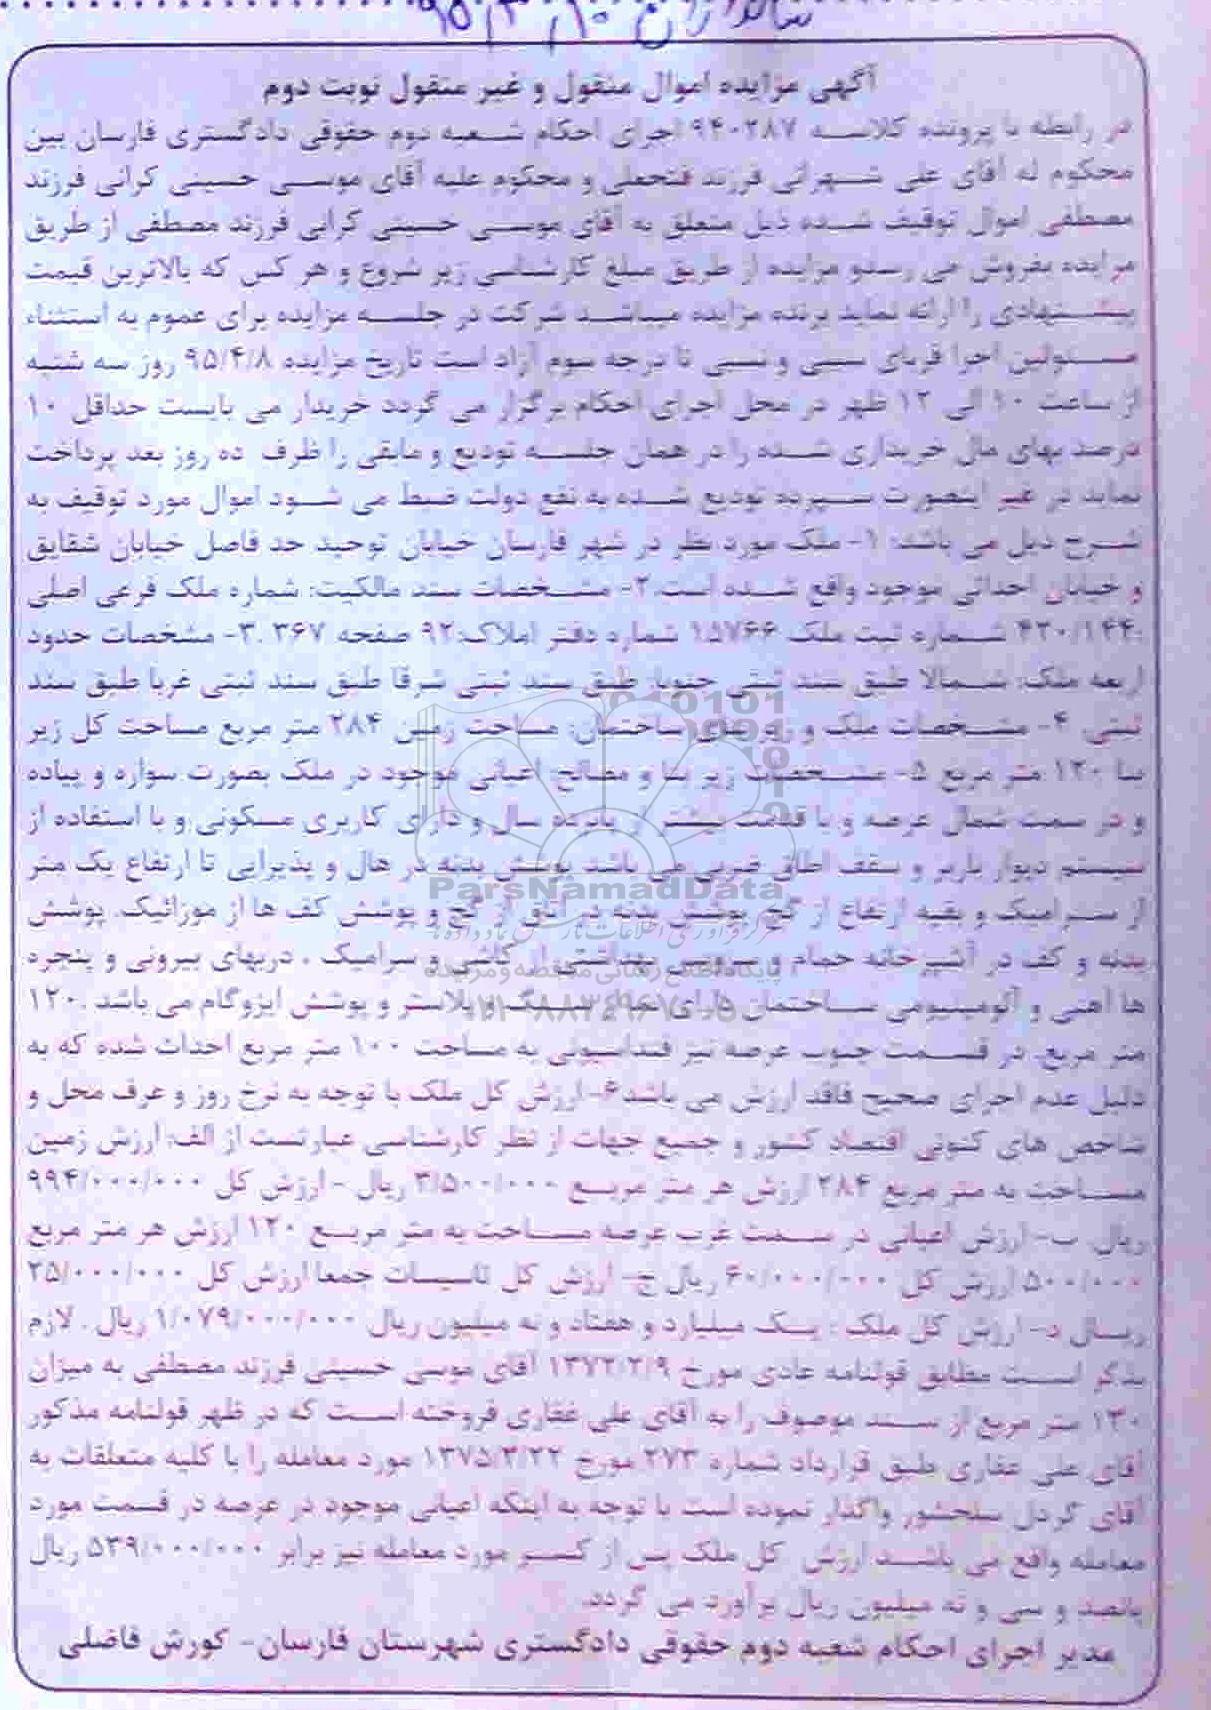 آگهی مزایده اموال منقول و غیر منقول نوبت دوم
در رابطه با پرونده کلاسه ۹۴۰۲۸۷ اجرای احکام شعبه دوم حقوقی دادگستری فارسان بین
محکوم له آقای علی شهرانی فرزند فتحعلی و محکوم علیه آقای موسی حسینی کرانی فرزند
مصطفی اموال توقیف شده ذیل متعلق به آقای موسی حسینی کرانی فرزند مصطفی از طریق
مزایده بفروش می رسدو مزایده از طریق مبلغ کارشناسی زیر شروع و هر کس که بالاترین قیمت
پیشنهادی را ارائه نماید برنده مزایده میباشد شرکت در جلسه مزایده برای عموم به استثناء
مسئولین اجرا قربای سببی و نسبی تا درجه سوم آزاد است تاریخ مزایده ۹۵/۴/۸ روز سه شنبه
از ساعت ۱۰ الی ۱۲ ظهر در محل اجرای احکام برگزار می گردد خریدار می بایست حداقل ۱۰
درصد بهای مال خریداری شده را در همان جلسه تودیع و مابقی را ظرف ده روز بعد پرداخت
نماید در غیر اینصورت سپرده تودیع شده به نفع دولت ضبط می شود اموال مورد توقیف به
شرح ذیل می باشد: ۱- ملک مورد نظر در شهر فارسان خیابان توحید حد فاصل خیابان شقایق
و خیابان احداثی موجود واقع شده است.۲- مشخصات سند مالکیت: شماره ملک فرعی اصلی
:۴۳۰/۱۴۴ شماره ثبت ملک ۱۵۷۶۶ شماره دفتر املاک:۹۲ صفحه ۳۶۷ .۳- مشخصات حدود
اربعه ملک: شمالا طبق سند ثبتی جنوبا: طبق سند ثبتی شرقا طبق سند ثبتی غربا طبق سند
ثبتی. ۴- مشخصات ملک و زیر بنای ساختمان: مساحت زمین ۲۸۴ متر مربع مساحت کل زیر
بنا ۱۲۰ متر مربع ۵- مشخصات زیر بنا و مصالح: اعیانی موجود در ملک بصورت سواره و پیاده
و در سمت شمال عرصه و با قدمت بیشتر از پانزده سال و دارای کاربری مسکونی و با استفاده از
سیستم دیوار باربر و سقف اطاق ضربی می باشد پوشش بدنه در هال و پذیرایی تا ارتفاع یک متر
از سرامیک و بقیه ارتفاع از گچ پوشش بدنه در اتاق از گچ و پوشش کف ها از موزائیک. پوشش
بدنه و کف در آشپزخانه حمام و سرویس بهداشتی از کاشی و سرامیک . دربهای بیرونی و پنجره
ها آهنی و آلومینیومی ساختمان دارای نمای سنگ و پلاستر و پوشش ایزوگام می باشد .۱۲۰
متر مربع. در قسمت جنوب عرصه نیز فنداسیونی به مساحت ۱۰۰ متر مربع احداث شده که به
دلیل عدم اجرای صحیح فاقد ارزش می باشد۶-ارزش کل ملک با توجه به نرخ روز و عرف محل و
شاخص های کنونی اقتصاد کشور و جمیع جهات از نظر کارشناسی عبارتست از الف: ارزش زمین
مساحت به متر مربع ۲۸۴ ارزش هر متر مربع ۳/۵۰۰/۰۰۰ ریال - ارزش کل ۹۹۴/۰۰۰/۰۰۰
ریال. ب- ارزش اعیانی در سمت غرب عرصه مساحت به متر مربع ۱۲۰ ارزش هر متر مربع
۵۰۰/۰۰۰ ارزش کل ۶۰/۰۰۰/۰۰۰ ریال ج- ارزش کل تاسیسات جمعا ارزش کل ۲۵/۰۰۰/۰۰۰
ریال د- ارزش کل ملک : یک میلیارد و هفتاد و نه میلیون ریال ۱/۰۷۹/۰۰۰/۰۰۰ ریال . لازم
بذکر است مطابق قولنامه عادی مورخ ۱۳۷۲/۲/۹ آقای موسی حسینی فرزند مصطفی به میزان
۱۳۰ متر مربع از سند موصوف را به آقای علی غفاری فروخته است که در ظهر قولنامه مذکور
آقای علی غفاری طبق قرارداد شماره ۲۷۳ مورخ ۱۳۷۵/۳/۲۲ مورد معامله را با کلیه متعلقات به
آقای گردل سلحشور واگذار نموده است با توجه به اینکه اعیانی موجود در عرصه در قسمت مورد
معامله واقع می باشد ارزش کل ملک پس از کسر مورد معامله نیز برابر ۵۳۹/۰۰۰/۰۰۰ ریال
پانصد و سی و نه میلیون ریال برآورد می گردد.
مدیر اجرای احکام شعبه دوم حقوقی دادگستری شهرستان فارسان- کورش فاضلی
ParsNamadData
پایگاه اطلاع رسانی مناقصه و مزایده
۰۲۱-۸۸۳۴۹۶۷۰-۵